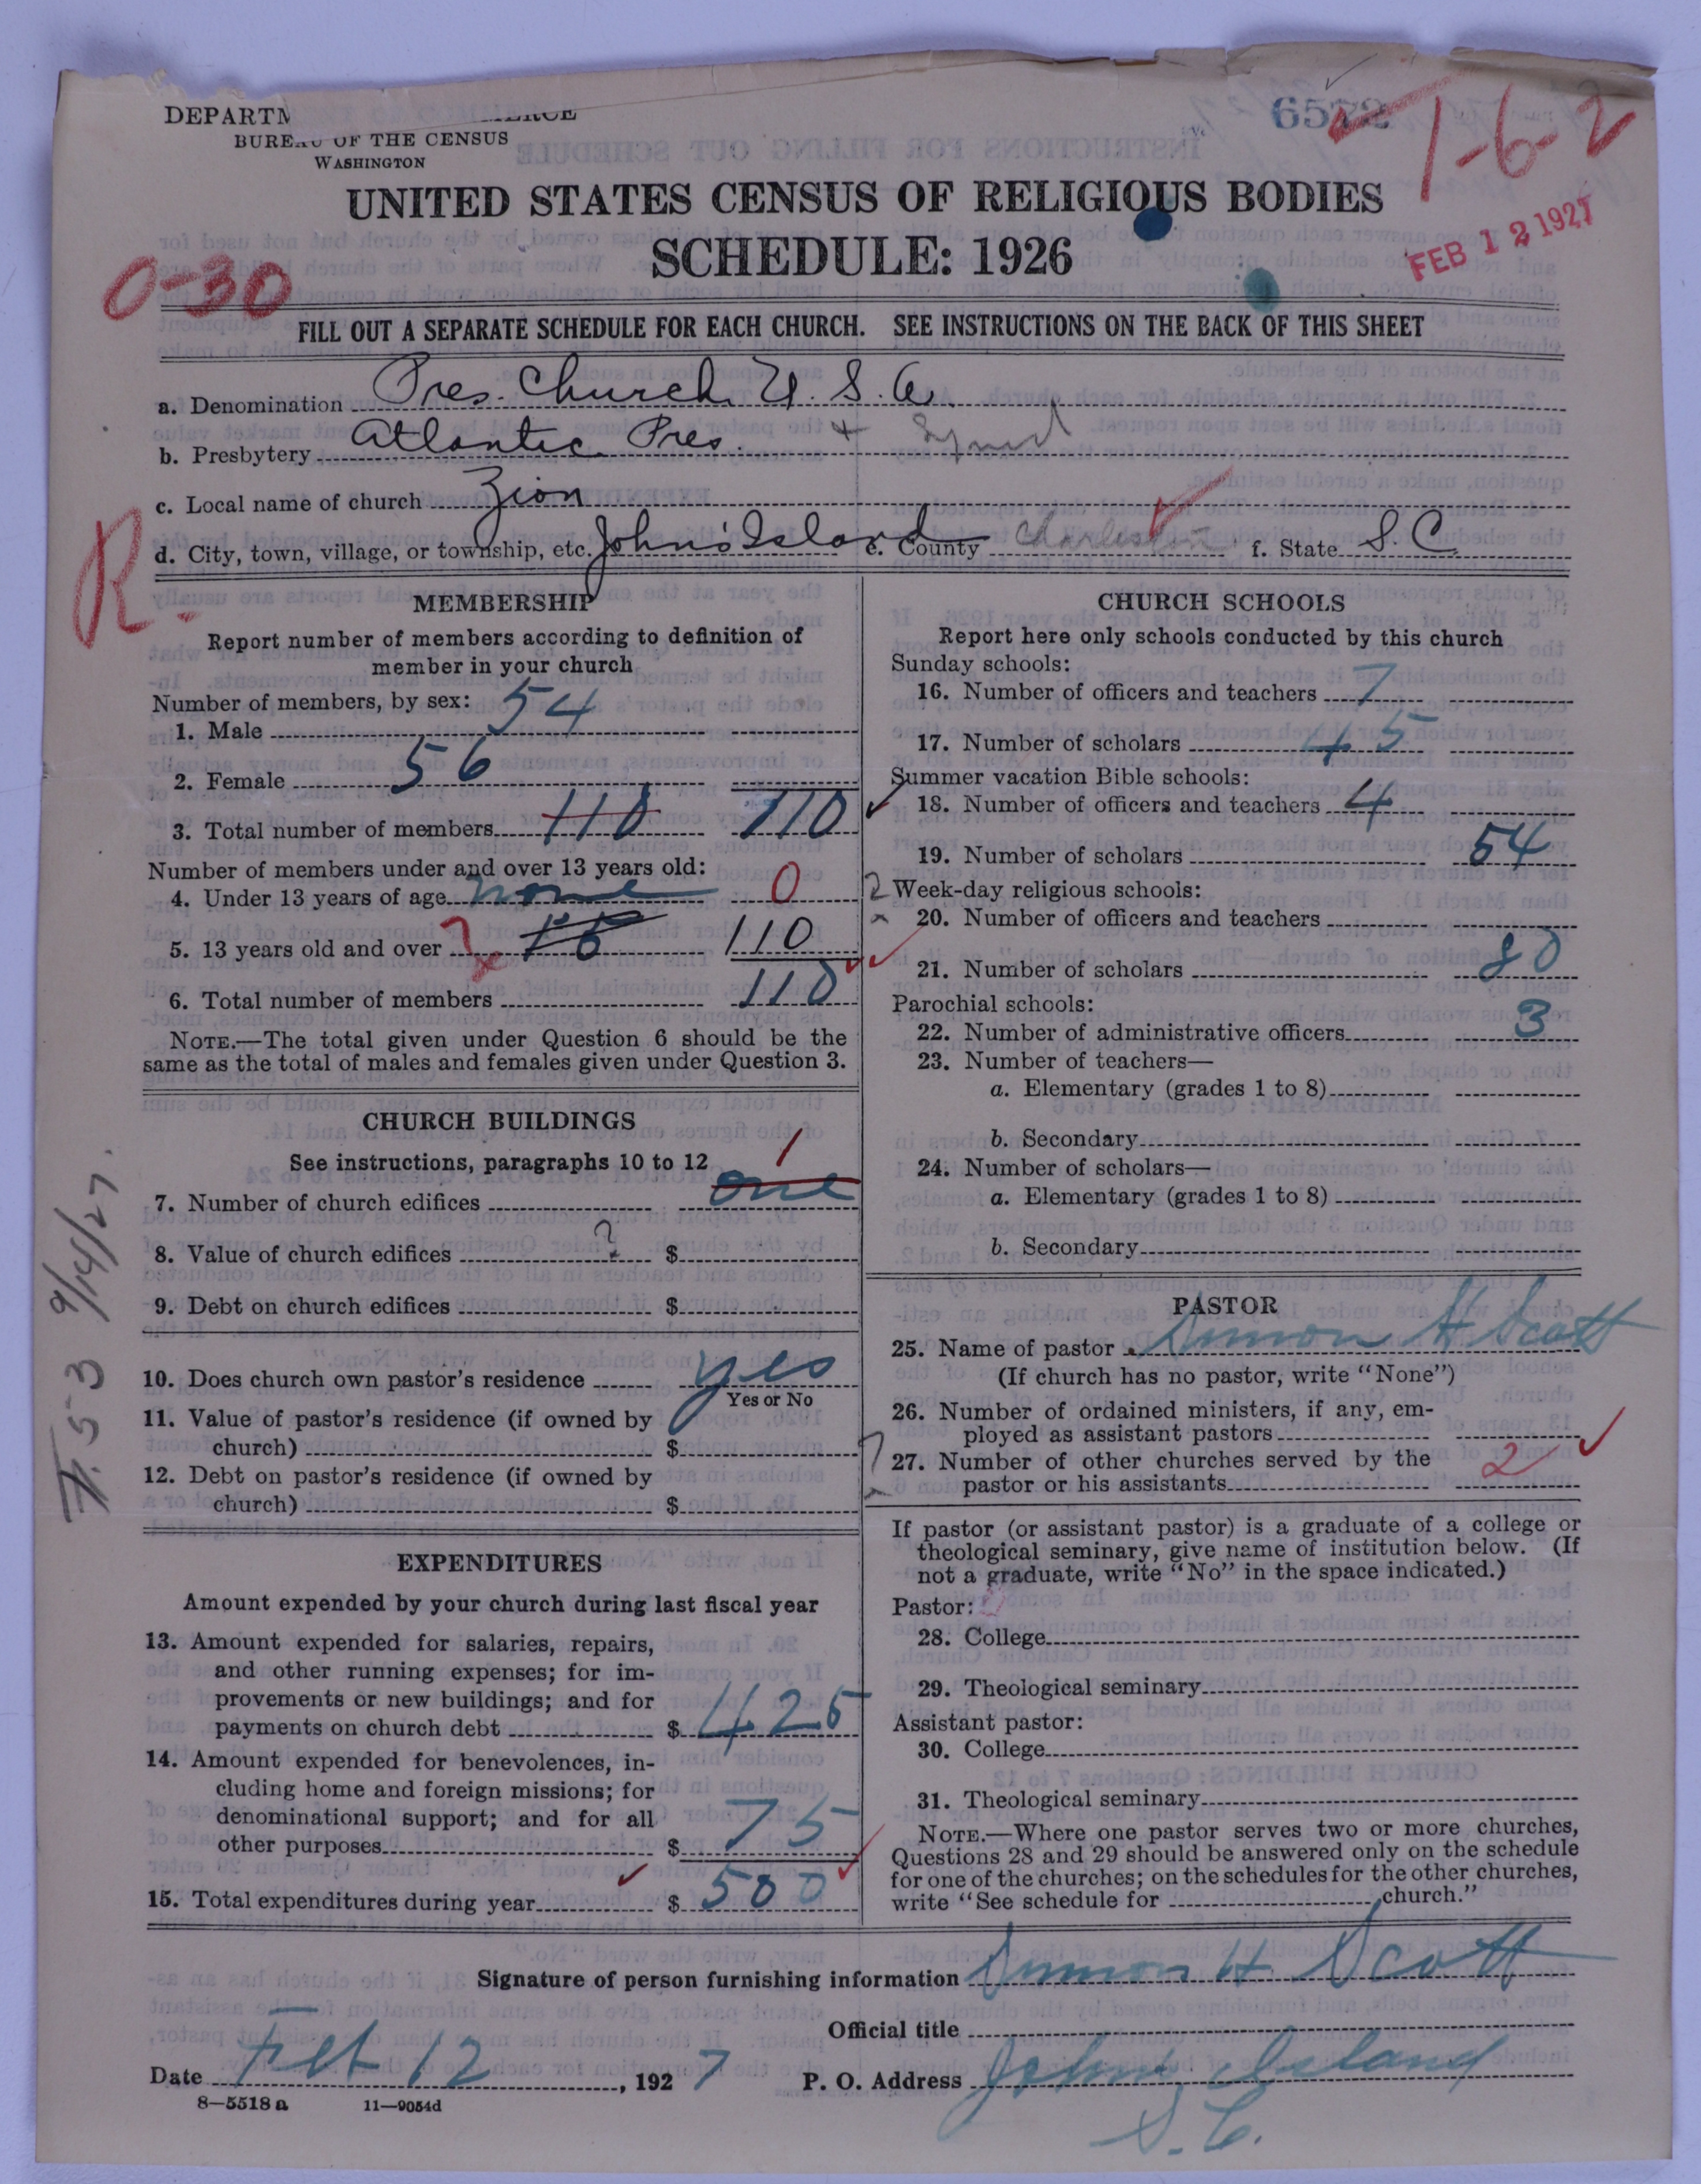 6572
1-6-2
BUREAU OF THE CENSUS
WASHINGTON
UNITED STATES CENSUS OF RELIGIOUS BODIES
SCHEDULE: 1926
FEB 12 1927
0-30
FILL OUT A SEPARATE SCHEDULE FOR EACH CHURCH. SEE INSTRUCTIONS ON THE BACK OF THIS SHEET
a. Denomination Pres. Church U. S. A.
b. Presbytery Atlantic Pres. + Synod
c. Local name of church Zion
d. City, town, village, or township, etc. John's Island e. County Charleston f. State S. C.
R.
MEMBERSHIP
Report number of members according to definition of
member in your church
Number of members, by sex:
1. Male 54
2. Female 56
3. Total number of members 110 110
Number of members under and over 13 years old:
4. Under 13 years of age none 0
5. 13 years old and over 110
6. Total number of members 110
NOTE.—The total given under Question 6 should be the
same as the total of males and females given under Question 3.
CHURCH BUILDINGS
See instructions, paragraphs 10 to 12
7. Number of church edifices one 1
8. Value of church edifices ? $
9. Debt on church edifices $
10. Does church own pastor's residence yes
Yes or No
11. Value of pastor's residence (if owned by
church) $
12. Debt on pastor's residence (if owned by
church) $
9/14/27.
EXPENDITURES
Amount expended by your church during last fiscal year
13. Amount expended for salaries, repairs,
and other running expenses; for im-
provements or new buildings; and for
payments on church debt $ 425
14. Amount expended for benevolences, in-
cluding home and foreign missions; for
denominational support; and for all
other purposes $ 75
15. Total expenditures during year $ 500
CHURCH SCHOOLS
Report here only schools conducted by this church
Sunday schools:
16. Number of officers and teachers 7
17. Number of scholars 45
Summer vacation Bible schools:
18. Number of officers and teachers 4
19. Number of scholars 54
Week-day religious schools:
20. Number of officers and teachers
21. Number of scholars 80
Parochial schools:
22. Number of administrative officers 3
23. Number of teachers—
a. Elementary (grades 1 to 8)
b. Secondary
24. Number of scholars—
a. Elementary (grades 1 to 8)
b. Secondary
PASTOR
25. Name of pastor H Scott
(If church has no pastor, write "None")
26. Number of ordained ministers, if any, em-
ployed as assistant pastors
27. Number of other churches served by the
pastor or his assistants 2
If pastor (or assistant pastor) is a graduate of a college or
theological seminary, give name of institution below. (If
not a graduate, write "No" in the space indicated.)
Pastor:
28. College
29. Theological seminary
Assistant pastor:
30. College
31. Theological seminary
NOTE.—Where one pastor serves two or more churches,
Questions 28 and 29 should be answered only on the schedule
for one of the churches; on the schedules for the other churches,
write "See schedule for church."
Signature of person furnishing information H Scott
Official title
Date Feb 12, 1927 P. O. Address Johns Island
S. C.
8—5518 a 11—9054d